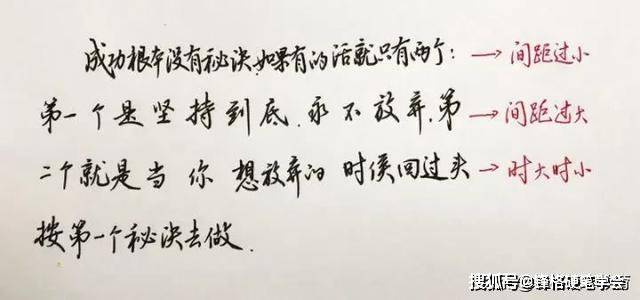 成功根本没有秘决,如果有的话就只有两个: → 间距过小
第一个是坚持到底.永不放弃.第 → 间距过大
二个就是当你想放弃的时侯回过头 → 时大时小
按第一个秘决去做.
搜狐号@锋格硬笔学会